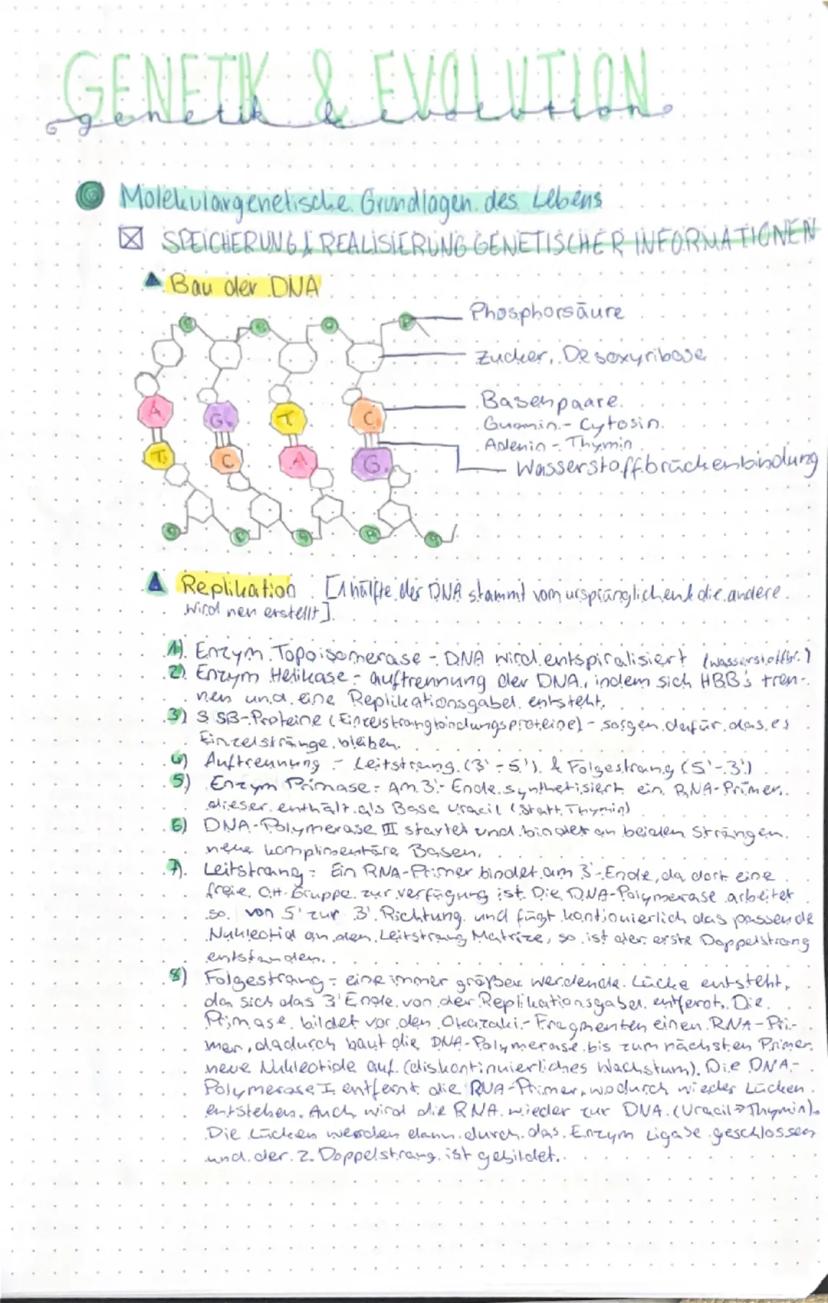 GENETIK & EVOLUTION
genetik & evolution
Molekulargenetische Grundlagen des Lebens
SPEICHERUNG & REALISIERUNG GENETISCHER INFORMATIONEN
Bau der DNA
Phosphorsäure
Zucker, Desoxyribose
Basenpaare
Guanin - Cytosin
Adenin - Thymin
Wasserstoffbrückenbindung
A G T C
T C A G
Replikation [1 hälfte der DNA stammt vom ursprünglichen & die andere
wird neu erstellt]
1) Enzym Topoisomerase - DNA wird entspiralisiert (wasserstoffbr.)
2) Enzym Helikase - auftrennung der DNA, indem sich HBB's tren-
nen und eine Replikationsgabel entsteht.
3) SSB-Proteine (Einzelstrangbindungsproteine) - sorgen dafür, das es
Einzelstränge bleiben.
4) Auftrennung - Leitstrang (3'-5') & Folgestrang (5'-3')
5) Enzym Primase - Am 3'-Ende synthetisiert ein RNA-Primer.
dieser enthält als Base Uracil (statt Thymin)
6) DNA-Polymerase III startet und bindet an beiden Strängen
neue komplimentäre Basen.
7) Leitstrang - Ein RNA-Primer bindet am 3'-Ende, da dort eine
freie OH-Gruppe zur verfügung ist. Die DNA-Polymerase arbeitet
so von 5' zur 3' Richtung und fügt kontionuierlich das passende
Nukleotid an den Leitstrang Matrize, so ist der erste Doppelstrang
entstanden.
8) Folgestrang - eine immer größer werdende Lücke entsteht,
da sich das 3' Ende von der Replikationsgabel entfernt. Die
Primase bildet vor den Okazaki-Fragmenten einen RNA-Pri-
mer, dadurch baut die DNA-Polymerase bis zum nächsten Primer
neue Nukleotide auf (diskontinuierliches Wachstum). Die DNA-
Polymerase I entfernt die RNA-Primer, wodurch wieder Lücken
entstehen. Auch wird die RNA wieder zur DNA (Uracil → Thymin).
Die Lücken werden dann durch das Enzym Ligase geschlossen
und der 2. Doppelstrang ist gebildet.